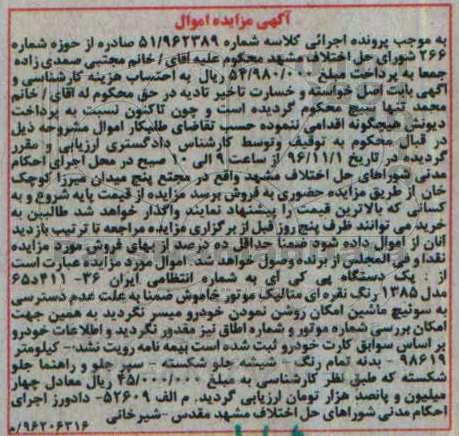 آگهی مزایده اموال
به موجب پرونده اجرائی کلاسه شماره ۵۱/۹۶۲۳۸۹ صادره از حوزه شماره
۲۶۶ شورای حل اختلاف مشهد محکوم علیه آقای / خانم مجتبی صمدی زاده
جمعا به پرداخت مبلغ ۵۴/۹۸۰/۰۰۰ ریال به احتساب هزینه کارشناسی و
آگهی بابت اصل خواسته و خسارت تاخیر تادیه در حق محکوم له آقای / خانم
محمد تنها بسیج محکوم گردیده است و چون تاکنون نسبت به پرداخت
دیونش هیچگونه اقدامی ننموده حسب تقاضای طلبکار اموال مشروحه ذیل
در قبال محکوم به توقیف وتوسط کارشناس دادگستری ارزیابی و مقرر
گردیده در تاریخ ۹۶/۱۱/۱ از ساعت ۹ الی ۱۰ صبح در محل اجرای احکام
مدنی شوراهای حل اختلاف مشهد واقع در مجتمع پنج میدان میرزا کوچک
خان از طریق مزایده حضوری به فروش برسد مزایده از قیمت پایه شروع و به
کسانی که بالاترین قیمت را پیشنهاد نمایند واگذار خواهد شد طالبین به
خرید می توانند ظرف پنج روز قبل از برگزاری مزایده مراجعه تا ترتیب بازدید
آنان از اموال داده شود ضمنا حداقل ده درصد از بهای فروش مورد مزایده
نقدا و فی المجلس از برنده وصول خواهد شد. اموال مورد مزایده عبارت است
از : یک دستگاه پی کی آی به شماره انتظامی ایران ۳۶- ۴۱۱د۶۵
مدل ۱۳۸۵ رنگ نقره ای متالیک موتور خاموش ضمنا به علت عدم دسترسی
به سوئیچ ماشین امکان روشن نمودن خودرو میسر نگردید به همین جهت
امکان بررسی شماره موتور و شماره اطاق نیز مقدور نگردید و اطلاعات خودرو
بر اساس سوابق کارت خودرو ثبت شده است بیمه نامه رویت نشد- کیلومتر
۹۸۶۱۹ - بدنه تمام رنگ - شیشه جلو شکسته - سپر جلو و راهنما جلو
شکسته که طبق نظر کارشناسی به مبلغ ۴۵/۰۰۰/۰۰۰ ریال معادل چهار
میلیون و پانصد هزار تومان ارزیابی گردید. م الف ۵۲۶۰۹- دادورز اجرای
احکام مدنی شوراهای حل اختلاف مشهد مقدس -شیرخانی
۹۶۲۰۶۳۱۶/م